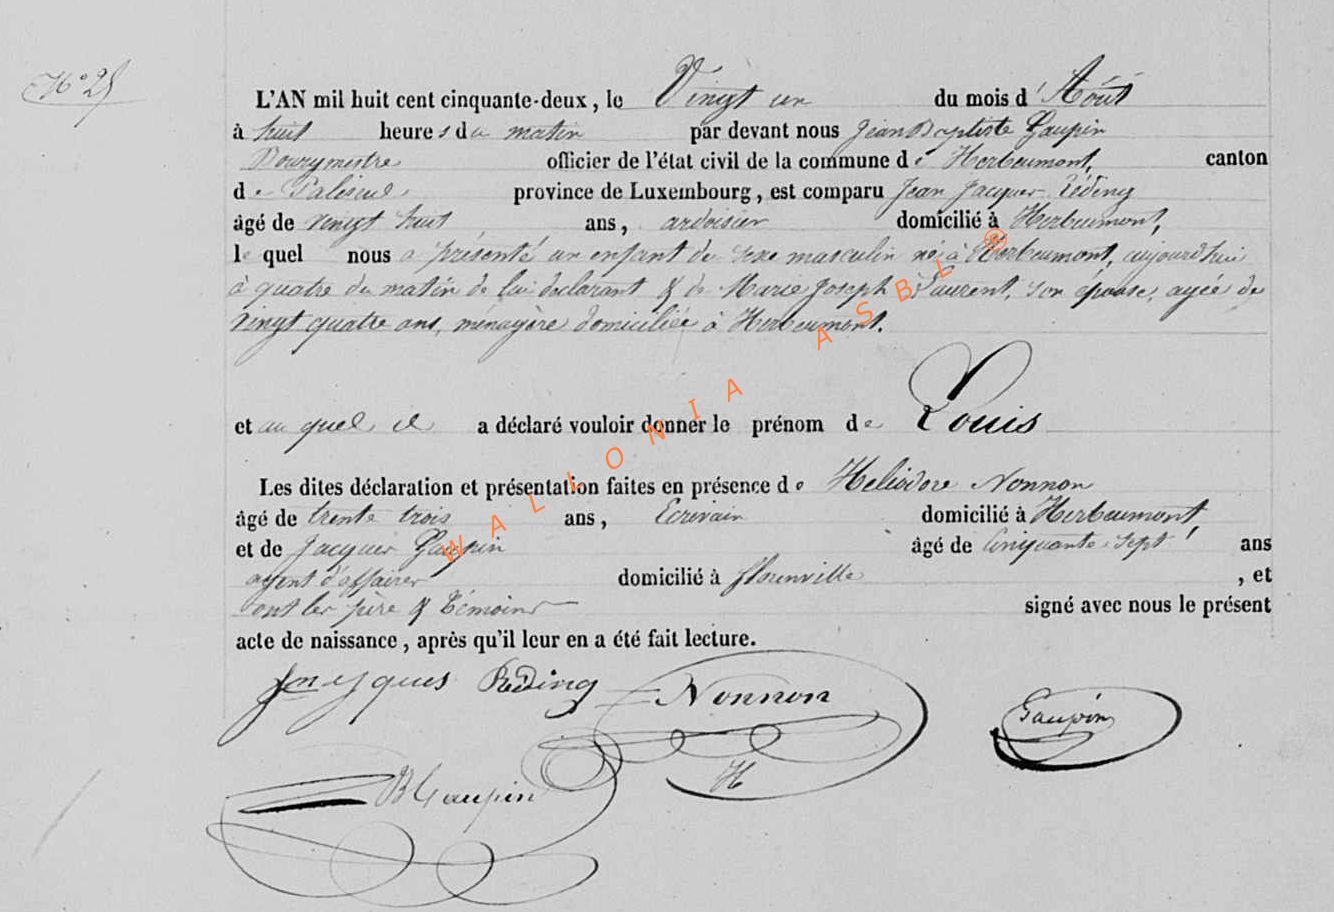 N° 25
L'AN mil huit cent cinquante-deux, le Vingt un du mois d'Août
à huit heures du matin par devant nous Jean Baptiste Gaupin
Bourgmestre officier de l'état civil de la commune de Herbeumont, canton
de Paliseul province de Luxembourg, est comparu Jean Jacques Réding
âgé de vingt huit ans, ardoisier domicilié à Herbeumont,
lequel nous a présenté un enfant de sexe masculin né à Herbeumont, aujourd'hui
à quatre du matin de lui déclarant & de Marie Joseph Laurent, son épouse, agée de
vingt quatre ans, ménagère domiciliée à Herbeumont.
et auquel il a déclaré vouloir donner le prénom de Louis
Les dites déclaration et présentation faites en présence de Heliodore Nonnon
âgé de trente trois ans, Ecrivain domicilié à Herbeumont,
et de Jacques Gaupin âgé de Cinquante-sept ans
agent d'affaires domicilié à florenville, et
ont les père & témoins signé avec nous le présent
acte de naissance, après qu'il leur en a été fait lecture.
Jn Jques Reding Nonnon Gaupin
H
JB Gaupin
WALLONIA ASBL ®